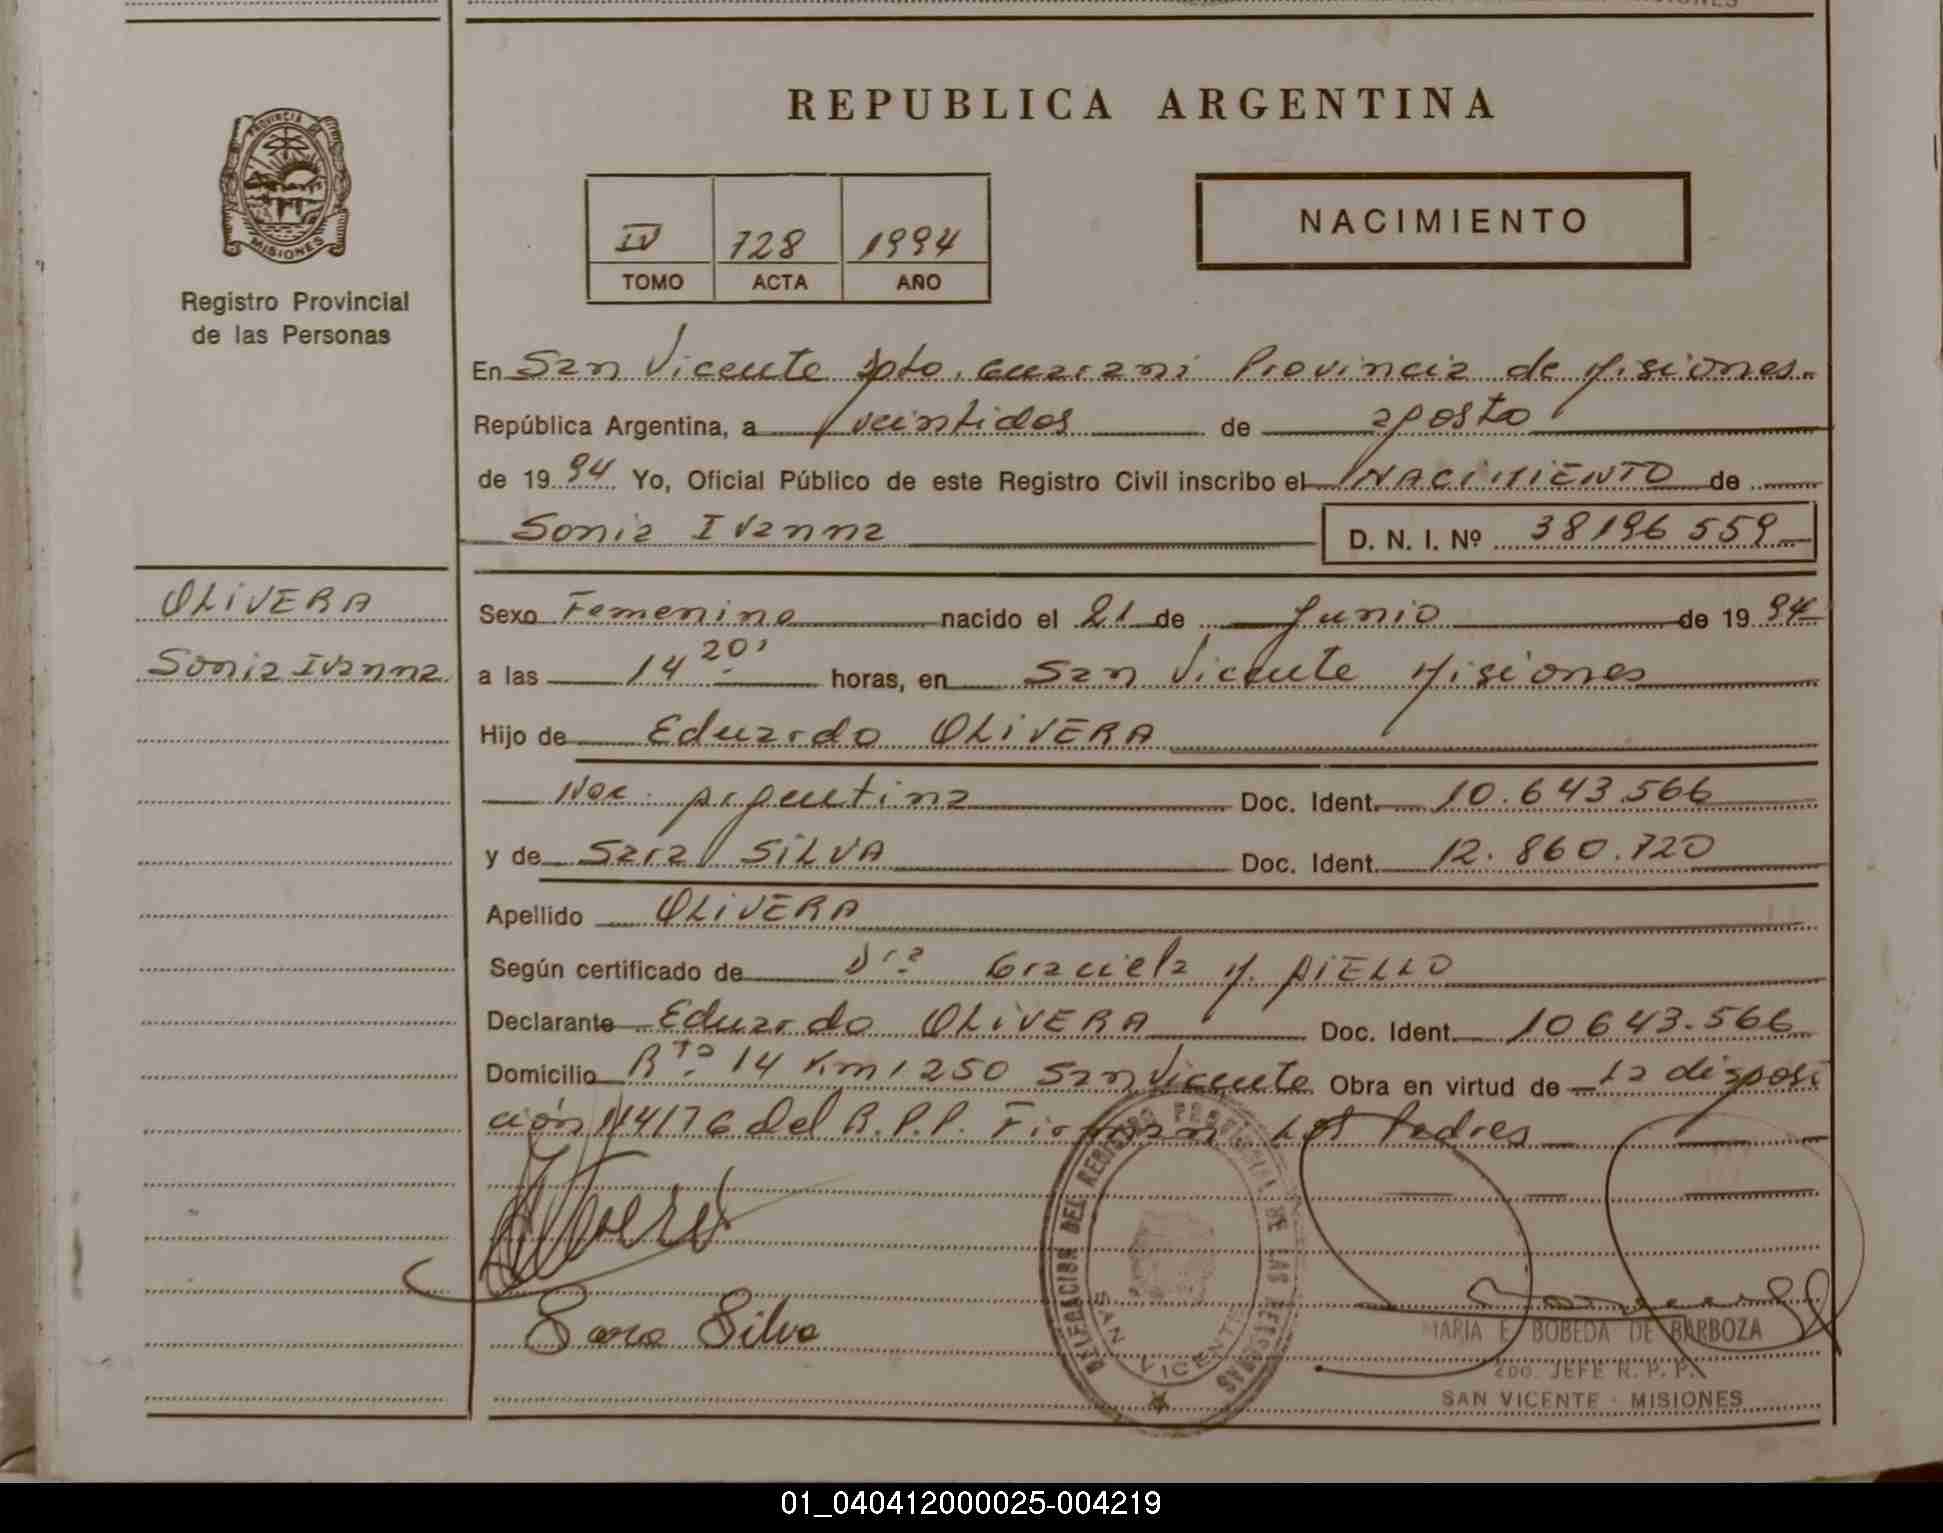 REPUBLICA ARGENTINA
PROVINCIA DE
MISIONES
Registro Provincial
de las Personas
IV 728 1994
TOMO ACTA AÑO
NACIMIENTO
En San Vicente Dpto. Guarani Provincia de Misiones.
República Argentina, a veintidos de agosto
de 1994 Yo, Oficial Público de este Registro Civil inscribo el NACIMIENTO de
Sonia Ivanna D. N. I. Nº 38196 559
OLIVERA
Sonia Ivanna
Sexo Femenino nacido el 21 de Junio de 1994
a las 14 20' horas, en San Vicente Misiones
Hijo de Eduardo OLIVERA
Nac. argentina Doc. Ident. 10.643.566
y de Sara SILVA Doc. Ident. 12.860.720
Apellido OLIVERA
Según certificado de Dra Graciela M. AIELLO
Declarante Eduardo OLIVERA Doc. Ident. 10643.566
Domicilio Rta. 14 Km 1250 San Vicente Obra en virtud de la disposi
ción 114/76 del R.P.P. Firman los Padres
Sara Silva
DELEGACION DEL REGISTRO PROVINCIAL DE LAS PERSONAS
SAN VICENTE
MARIA E. BOBEDA DE BARBOZA
2DO. JEFE R. P. P.
SAN VICENTE - MISIONES
01_040412000025-004219